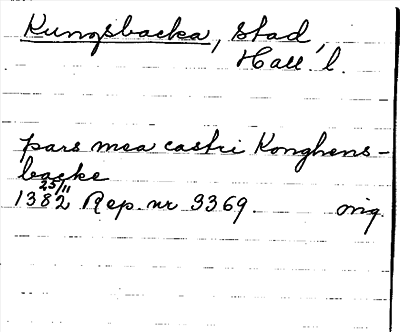 Kungsbacka, stad,
Hall. l.
pars mea castri Konghens-
backe
25/11
1382 Rep. nr 3369. orig.